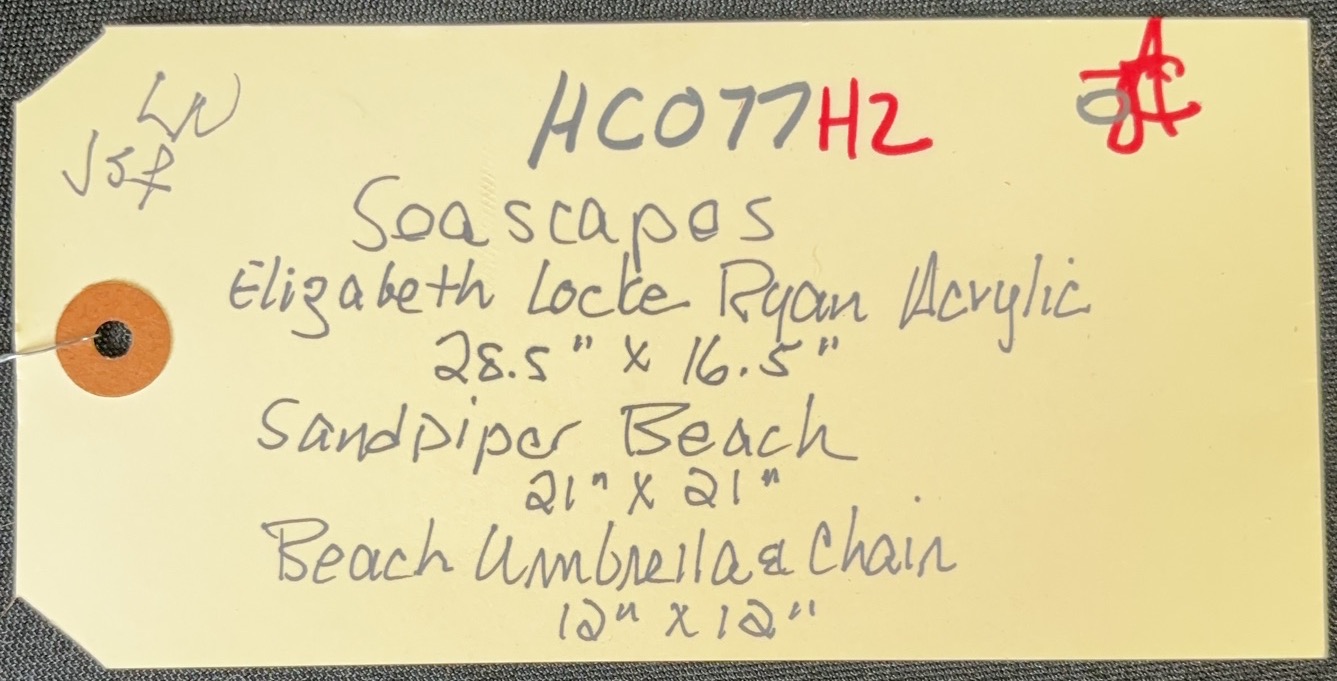 LW
JSF
HC077H2
Seascapes
Elizabeth Locke Ryan Acrylic
28.5" x 16.5"
Sandpiper Beach
21" x 21"
Beach Umbrella & Chair
12" x 12"